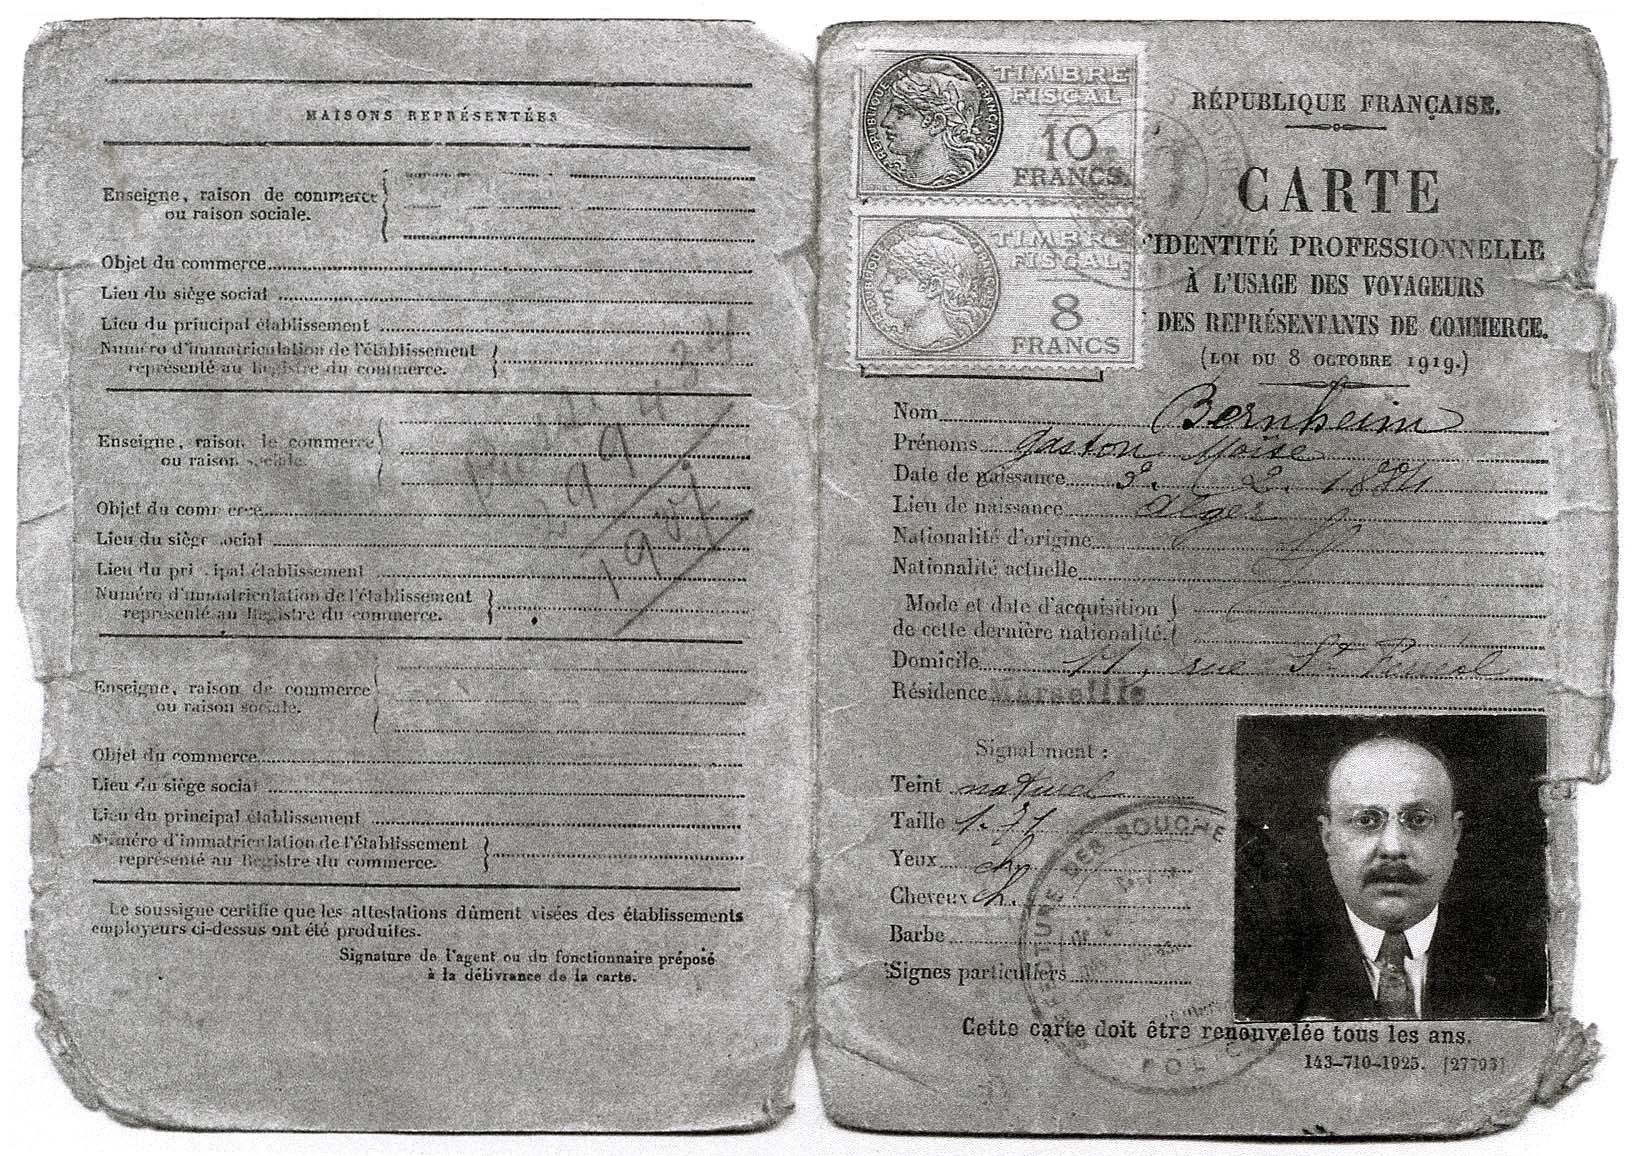 MAISONS REPRÉSENTÉES
Enseigne, raison de commerce
ou raison sociale.
Objet du commerce
Lieu du siège social
Lieu du principal établissement
Numéro d'immatriculation de l'établissement
représenté au Registre du commerce.
Enseigne, raison de commerce
ou raison sociale.
Objet du commerce
Lieu du siège social
Lieu du principal établissement
Numéro d'immatriculation de l'établissement
représenté au Registre du commerce.
299
Enseigne, raison de commerce
ou raison sociale.
Objet du commerce
Lieu du siège social
Lieu du principal établissement
Numéro d'immatriculation de l'établissement
représenté au Registre du commerce.
Le soussigné certifie que les attestations dûment visées des établissements
employeurs ci-dessus ont été produites.
Signature de l'agent ou du fonctionnaire préposé
à la délivrance de la carte.
RÉPUBLIQUE FRANÇAISE
TIMBRE
FISCAL
10
FRANCS
RÉPUBLIQUE FRANÇAISE
TIMBRE
FISCAL
8
FRANCS
RÉPUBLIQUE FRANÇAISE.
CARTE
'IDENTITÉ PROFESSIONNELLE
À L'USAGE DES VOYAGEURS
DES REPRÉSENTANTS DE COMMERCE.
(LOI DU 8 OCTOBRE 1919.)
Nom Bernheim
Prénoms Gaston Moïse
Date de naissance 3. 2. 1884
Lieu de naissance Alger
Nationalité d'origine
Nationalité actuelle
Mode et date d'acquisition
de cette dernière nationalité.
Domicile rue St
Résidence Marseille
Signalement :
Teint naturel
Taille
Yeux
Cheveux ch.
Barbe
Signes particuliers
BOUCHE
POL
Cette carte doit être renouvelée tous les ans.
143-710-1925. [27793]